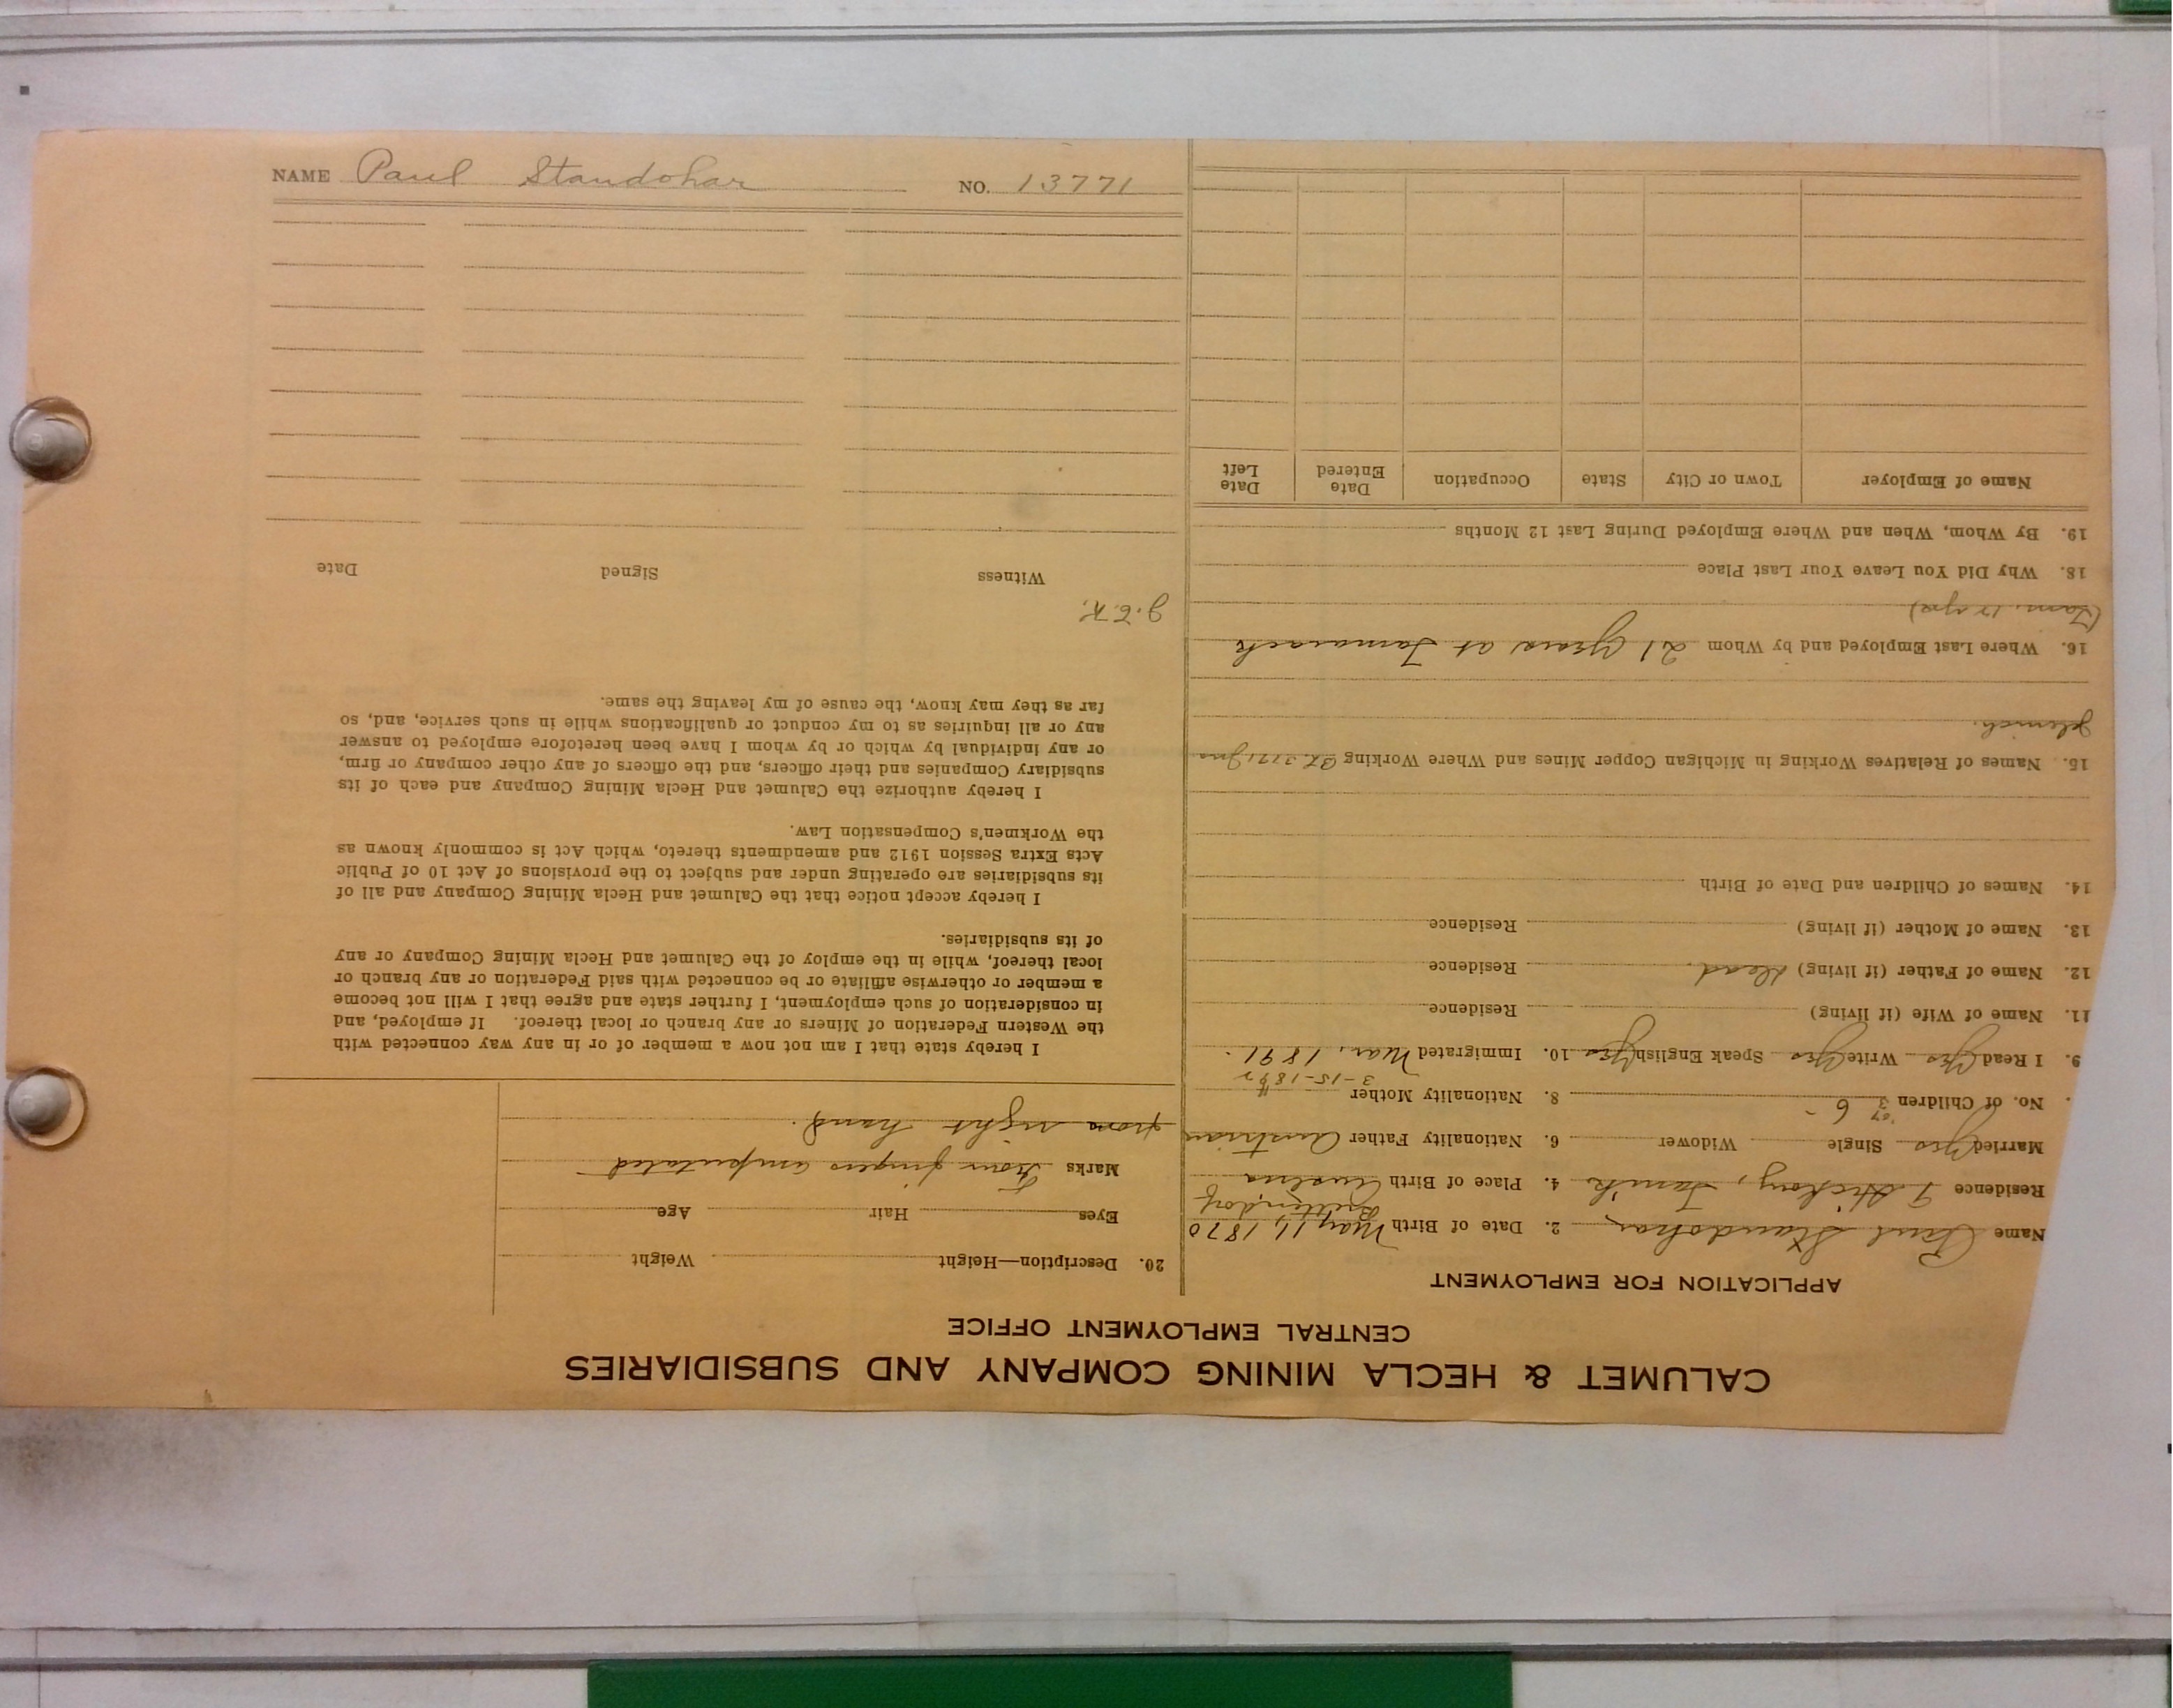 NAME Paul Standohar NO. 13771
CALUMET & HECLA MINING COMPANY AND SUBSIDIARIES
CENTRAL EMPLOYMENT OFFICE
APPLICATION FOR EMPLOYMENT
Name Paul Standohar 2. Date of Birth May 11, 1870
Residence T. Hickory, Tam'k 4. Place of Birth
Married Yes Single Widower 6. Nationality Father Austrian
No. of Children 3 6 8. Nationality Mother
3-15-189
9. I Read Yes Write Yes Speak English Yes 10. Immigrated Mar. 1891.
11. Name of Wife (if living) Residence
12. Name of Father (if living) dead. Residence
13. Name of Mother (if living) Residence
14. Names of Children and Date of Birth
15. Names of Relatives Working in Michigan Copper Mines and Where Working
16. Where Last Employed and by Whom 21 years at Tamarack
(Tam. 17 yrs)
18. Why Did You Leave Your Last Place
19. By Whom, When and Where Employed During Last 12 Months
Name of Employer Town or City State Occupation Date Entered Date Left
20. Description—Height Weight
Eyes Hair Age
Marks Four fingers amputated
from right hand.
I hereby state that I am not now a member of or in any way connected with
the Western Federation of Miners or any branch or local thereof. If employed, and
in consideration of such employment, I further state and agree that I will not become
a member or otherwise affiliate or be connected with said Federation or any branch or
local thereof, while in the employ of the Calumet and Hecla Mining Company or any
of its subsidiaries.
I hereby accept notice that the Calumet and Hecla Mining Company and all of
its subsidiaries are operating under and subject to the provisions of Act 10 of Public
Acts Extra Session 1912 and amendments thereto, which Act is commonly known as
the Workmen's Compensation Law.
I hereby authorize the Calumet and Hecla Mining Company and each of its
subsidiary Companies and their officers, and the officers of any other company or firm,
or any individual by which or by whom I have been heretofore employed to answer
any or all inquiries as to my conduct or qualifications while in such service, and, so
far as they may know, the cause of my leaving the same.
J.E.K.
Witness Signed Date